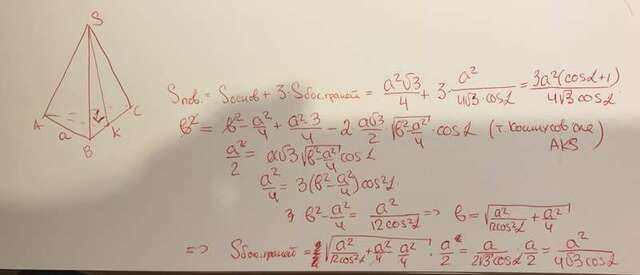 S
A
a
B
α
K
C
Sпов. = Sоснов + 3·Sбос.граней = a²√3/4 + 3·a²/(4√3·cosα) = 3a²(cosα+1)/(4√3 cosα)
b² = b² - a²/4 + a²3/4 - 2 a√3/2 √(b²-a²/4) · cosα (т. Косинусов для
AKS)
a²/2 = a√3 √(b²-a²/4) cosα
a²/4 = 3(b²-a²/4)cos²α.
b²-a²/4 = a²/(12cos²α) => b = √(a²/(12cos²α) + a²/4)
=> Sбос.граней = √(a²/(12cos²α) + a²/4 - a²/4) · a/2 = a/(2√3 cosα) · a/2 = a²/(4√3 cosα)